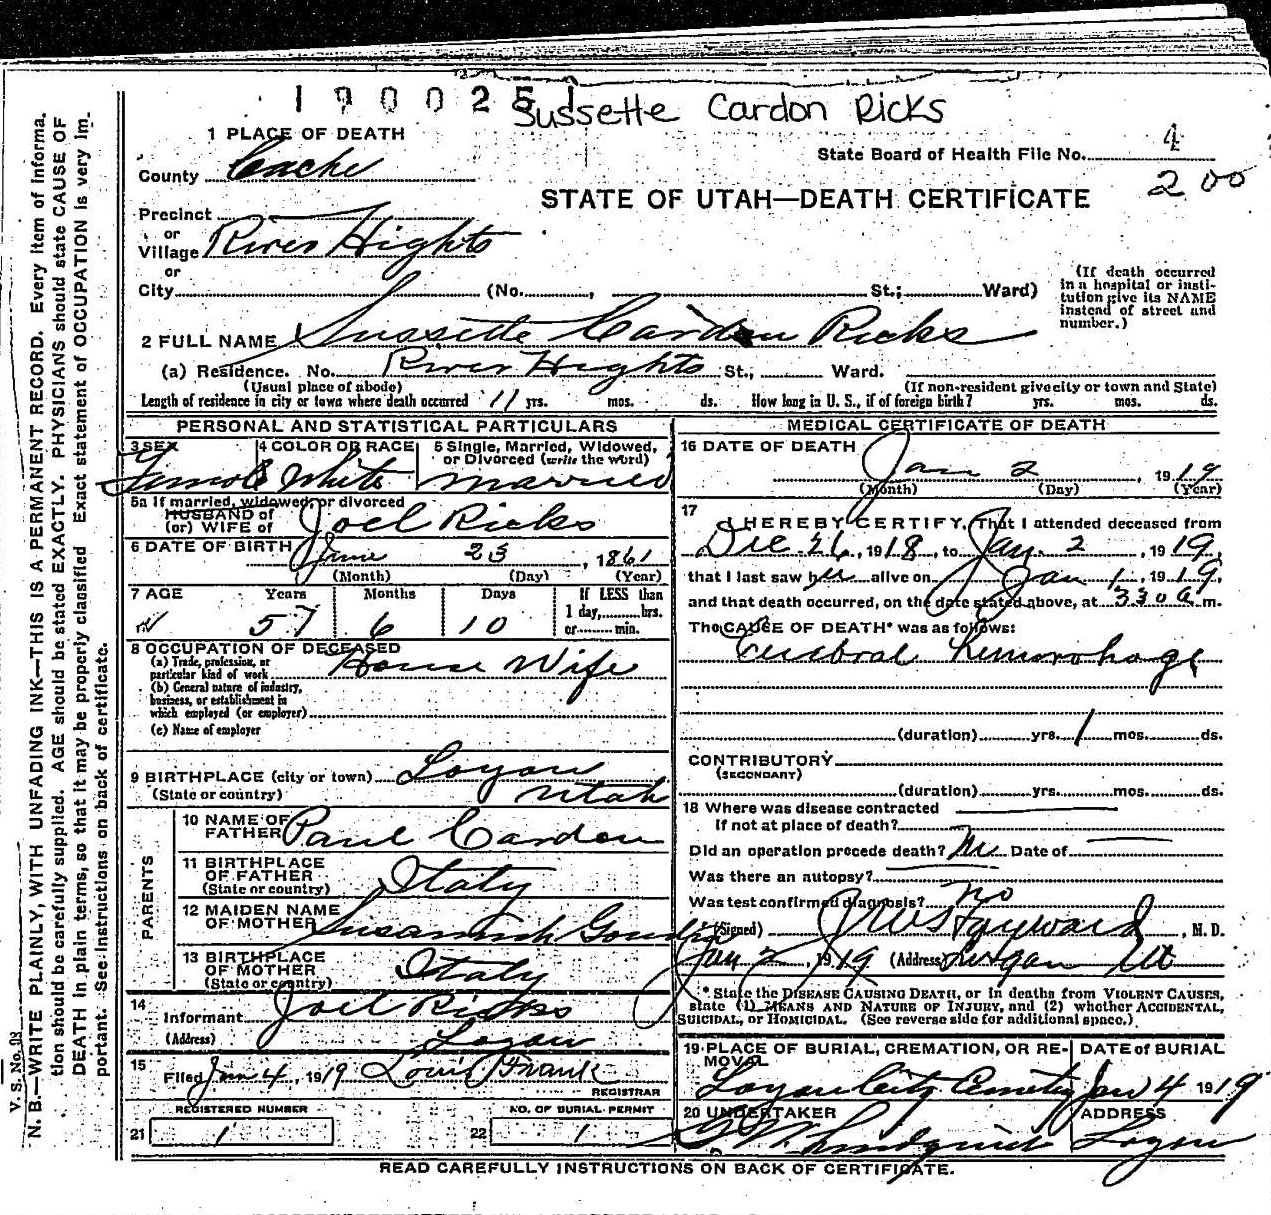 1900251
Sussette Cardon Ricks
1 PLACE OF DEATH
County Cache
State Board of Health File No. 4
200
STATE OF UTAH—DEATH CERTIFICATE
Precinct
or
Village River Hights
or
City (No. , St.; Ward)
(If death occurred in a hospital or insti-
tution give its NAME
instead of street and
number.)
2 FULL NAME Sussette Cardon Ricks
(a) Residence. No. River Hights St., Ward.
(Usual place of abode) (If non-resident give city or town and State)
Length of residence in city or town where death occurred 11 yrs. mos. ds. How long in U. S., if of foreign birth? yrs. mos. ds.
PERSONAL AND STATISTICAL PARTICULARS
3 SEX
Female
4 COLOR OR RACE
White
5 Single, Married, Widowed,
or Divorced (write the word)
married
5a If married, widowed, or divorced
HUSBAND of
(or) WIFE of Joel Ricks
6 DATE OF BIRTH June 23, 1861
(Month) (Day) (Year)
7 AGE Years Months Days If LESS than
1 day, hrs.
or min.
57 6 10
8 OCCUPATION OF DECEASED
(a) Trade, profession, or
particular kind of work House Wife
(b) General nature of industry,
business, or establishment in
which employed (or employer)
(c) Name of employer
9 BIRTHPLACE (city or town) Logan
(State or country) Utah
PARENTS
10 NAME OF
FATHER Paul Cardon
11 BIRTHPLACE
OF FATHER
(State or country) Italy
12 MAIDEN NAME
OF MOTHER Susannah
13 BIRTHPLACE
OF MOTHER
(State or country) Italy
14
Informant Joel Ricks
(Address) Logan
15
Filed Jan 4, 1919 Louis Frank
REGISTRAR
REGISTERED NUMBER
21 1
NO. OF BURIAL PERMIT
22 1
MEDICAL CERTIFICATE OF DEATH
16 DATE OF DEATH
Jan 2, 1919
(Month) (Day) (Year)
17
I HEREBY CERTIFY, That I attended deceased from
Dec 26, 1918, to Jan. 2, 1919,
that I last saw her alive on Jan 1, 1919,
and that death occurred, on the date stated above, at 330 a m.
The CAUSE OF DEATH* was as follows:
Cerebral hemorrhage
(duration) yrs. 1 mos. ds.
CONTRIBUTORY
(SECONDARY)
(duration) yrs. mos. ds.
18 Where was disease contracted
If not at place of death?
Did an operation precede death? No Date of
Was there an autopsy?
Was test confirmed diagnosis? no
(Signed) J W Hayward, M. D.
Jan 2, 1919 (Address) Logan Ut
* State the DISEASE CAUSING DEATH, or in deaths from VIOLENT CAUSES,
state (1) MEANS AND NATURE OF INJURY, and (2) whether ACCIDENTAL,
SUICIDAL, or HOMICIDAL. (See reverse side for additional space.)
19 PLACE OF BURIAL, CREMATION, OR RE-
MOVAL
Logan City Cemetery
DATE of BURIAL
Jan 4 1919
20 UNDERTAKER
Lindquist
ADDRESS
Logan
READ CAREFULLY INSTRUCTIONS ON BACK OF CERTIFICATE.
V. S. No. 98
N. B.—WRITE PLAINLY, WITH UNFADING INK—THIS IS A PERMANENT RECORD. Every item of informa-
tion should be carefully supplied. AGE should be stated EXACTLY. PHYSICIANS should state CAUSE OF
DEATH in plain terms, so that it may be properly classified. Exact statement of OCCUPATION is very im-
portant. See instructions on back of certificate.